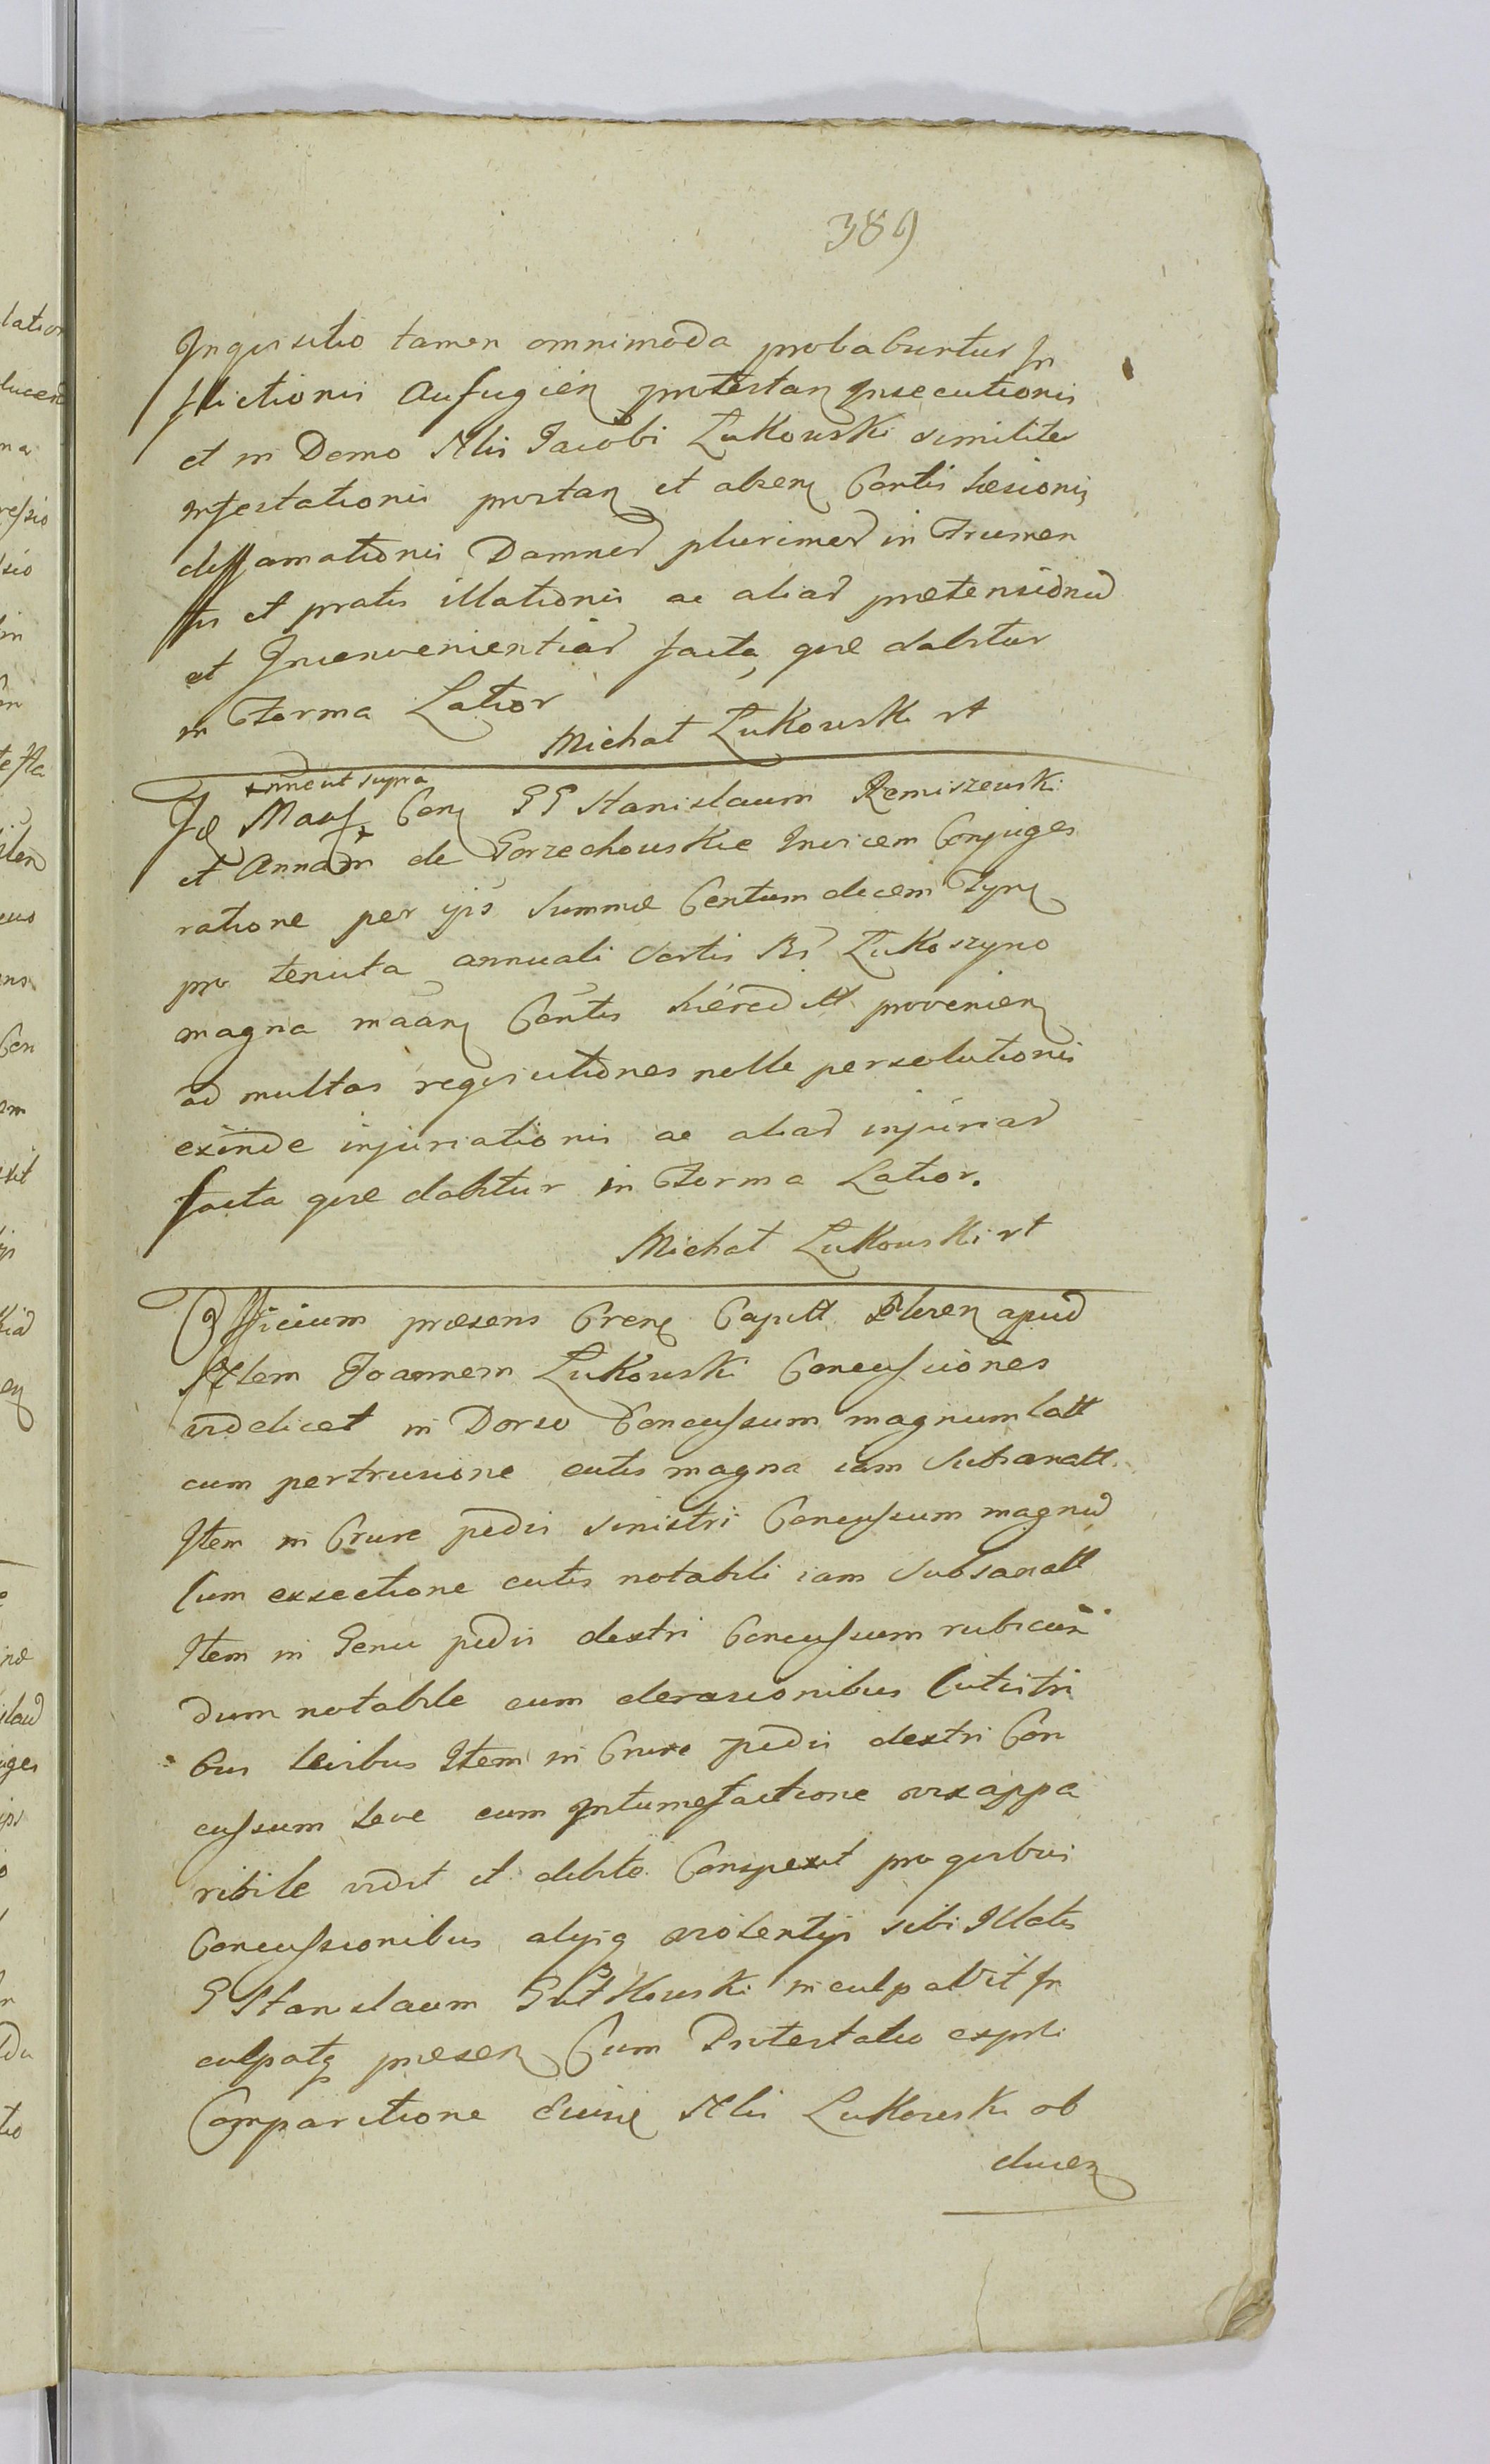 389
Inquisitio tamen omnimoda probabuntur In
flictionis aufugien protestan Insecutionis
et in Domo Nlis Jacobi Łukowski similiter
infestationis prottan et absen Contis læsionis
diffamationis Damnor plurimor in Frumen
tis et pratis illationis ac aliar prætensionu
et Inconvenientiar facta, quæ dabitur
in Forma Latior
Michał Łukowski rt
Manf Con GG Stanislaum Remiszewski
inne ut supra
et Annam de Gorzechowskie Invicem Conjuges
ratione per ips Summæ Centum decem Tynf
pro tenuta annuali Sortis Łukoszyno
magna Contis hæredit provenien
ad multas requisitiones nolle persolutionis
exinde injuriationis ac aliar injuriar
facta quæ dabitur in Forma Latior.
Michał Łukowski rt
Officium præsens Capitt Plocen apud
Nlem Joannem Łukowski Concussiones
videlicet in Dorso Concussum magnum latt
cum pertrusione cutis magna iam Subsanatt
Item in Crure pedis sinistri Concussum magnu
Cum exsectione cutis notabili iam Subsanatt
Item in Genu pedis dextri Concussum rubicun
dum notabile cum derasionibus Cutis tri
bus levibus Item in Crure pedis dextri Con
cussum leve cum Intumefactione vix appa
ribile vidit et debite Conspexit pro quibus
Concussionibus alysq violentys sibi Illatis
G Stanislaum Gutkowski inculpavit In
culpatq præsen Cum Protestatio expsti
Comparitione Nlis Łukowski ob
ducen